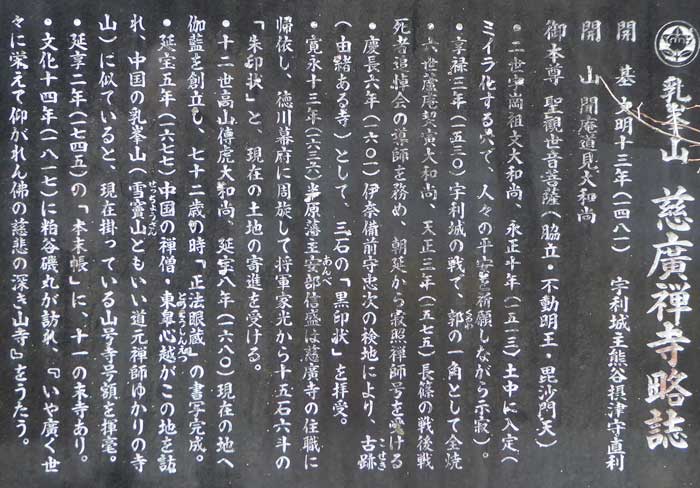 乳峯山 慈廣禅寺略誌
開基 文明十三年(一四八一) 宇利城主熊谷摂津守直利
開山 開庵道見大和尚
御本尊 聖観世音菩薩(脇立・不動明王・毘沙門天)
・二世字岡祖文大和尚、永正十年(一五一三)土中に入定(
ミイラ化する)穴で、人々の平安を祈願しながら示寂)。
・享禄三年(一五三〇)宇利城の戦で、郭の一角として全焼
・六世蘆庵契廣大和尚、天正三年(一五七五)長篠の戦後戦
死者追悼会の導師を務め、朝廷から寂照禅師号を受ける
・慶長六年(一六〇一)伊奈備前守忠次の検地により、古跡
(由緒ある寺)として、三石の「黒印状」を拝受。
・寛永十三年(一六三六)半原藩主安部信盛は慈廣寺の住職に
帰依し、徳川幕府に周旋して将軍家光から十五石六斗の
「朱印状」と、現在の土地の寄進を受ける。
・十二世高山傳虎大和尚、延宝八年(一六八〇)現在の地へ
伽藍を創立し、七十二歳の時「正法眼蔵」の書写完成。
・延宝五年(一六七七)中国の禅僧・東皐心越がこの地を訪
れ、中国の乳峯山(雪竇山ともいい道元禅師ゆかりの寺
山)に似ていると、現在掛っている山号寺号額を揮毫。
・延享二年(一七四五)の「本末帳」に、十一の末寺あり。
・文化十四年(一八一七)に粕谷磯丸が訪れ、『いや廣く世
々に栄えて仰がれん佛の慈悲の深き山寺』をうたう。